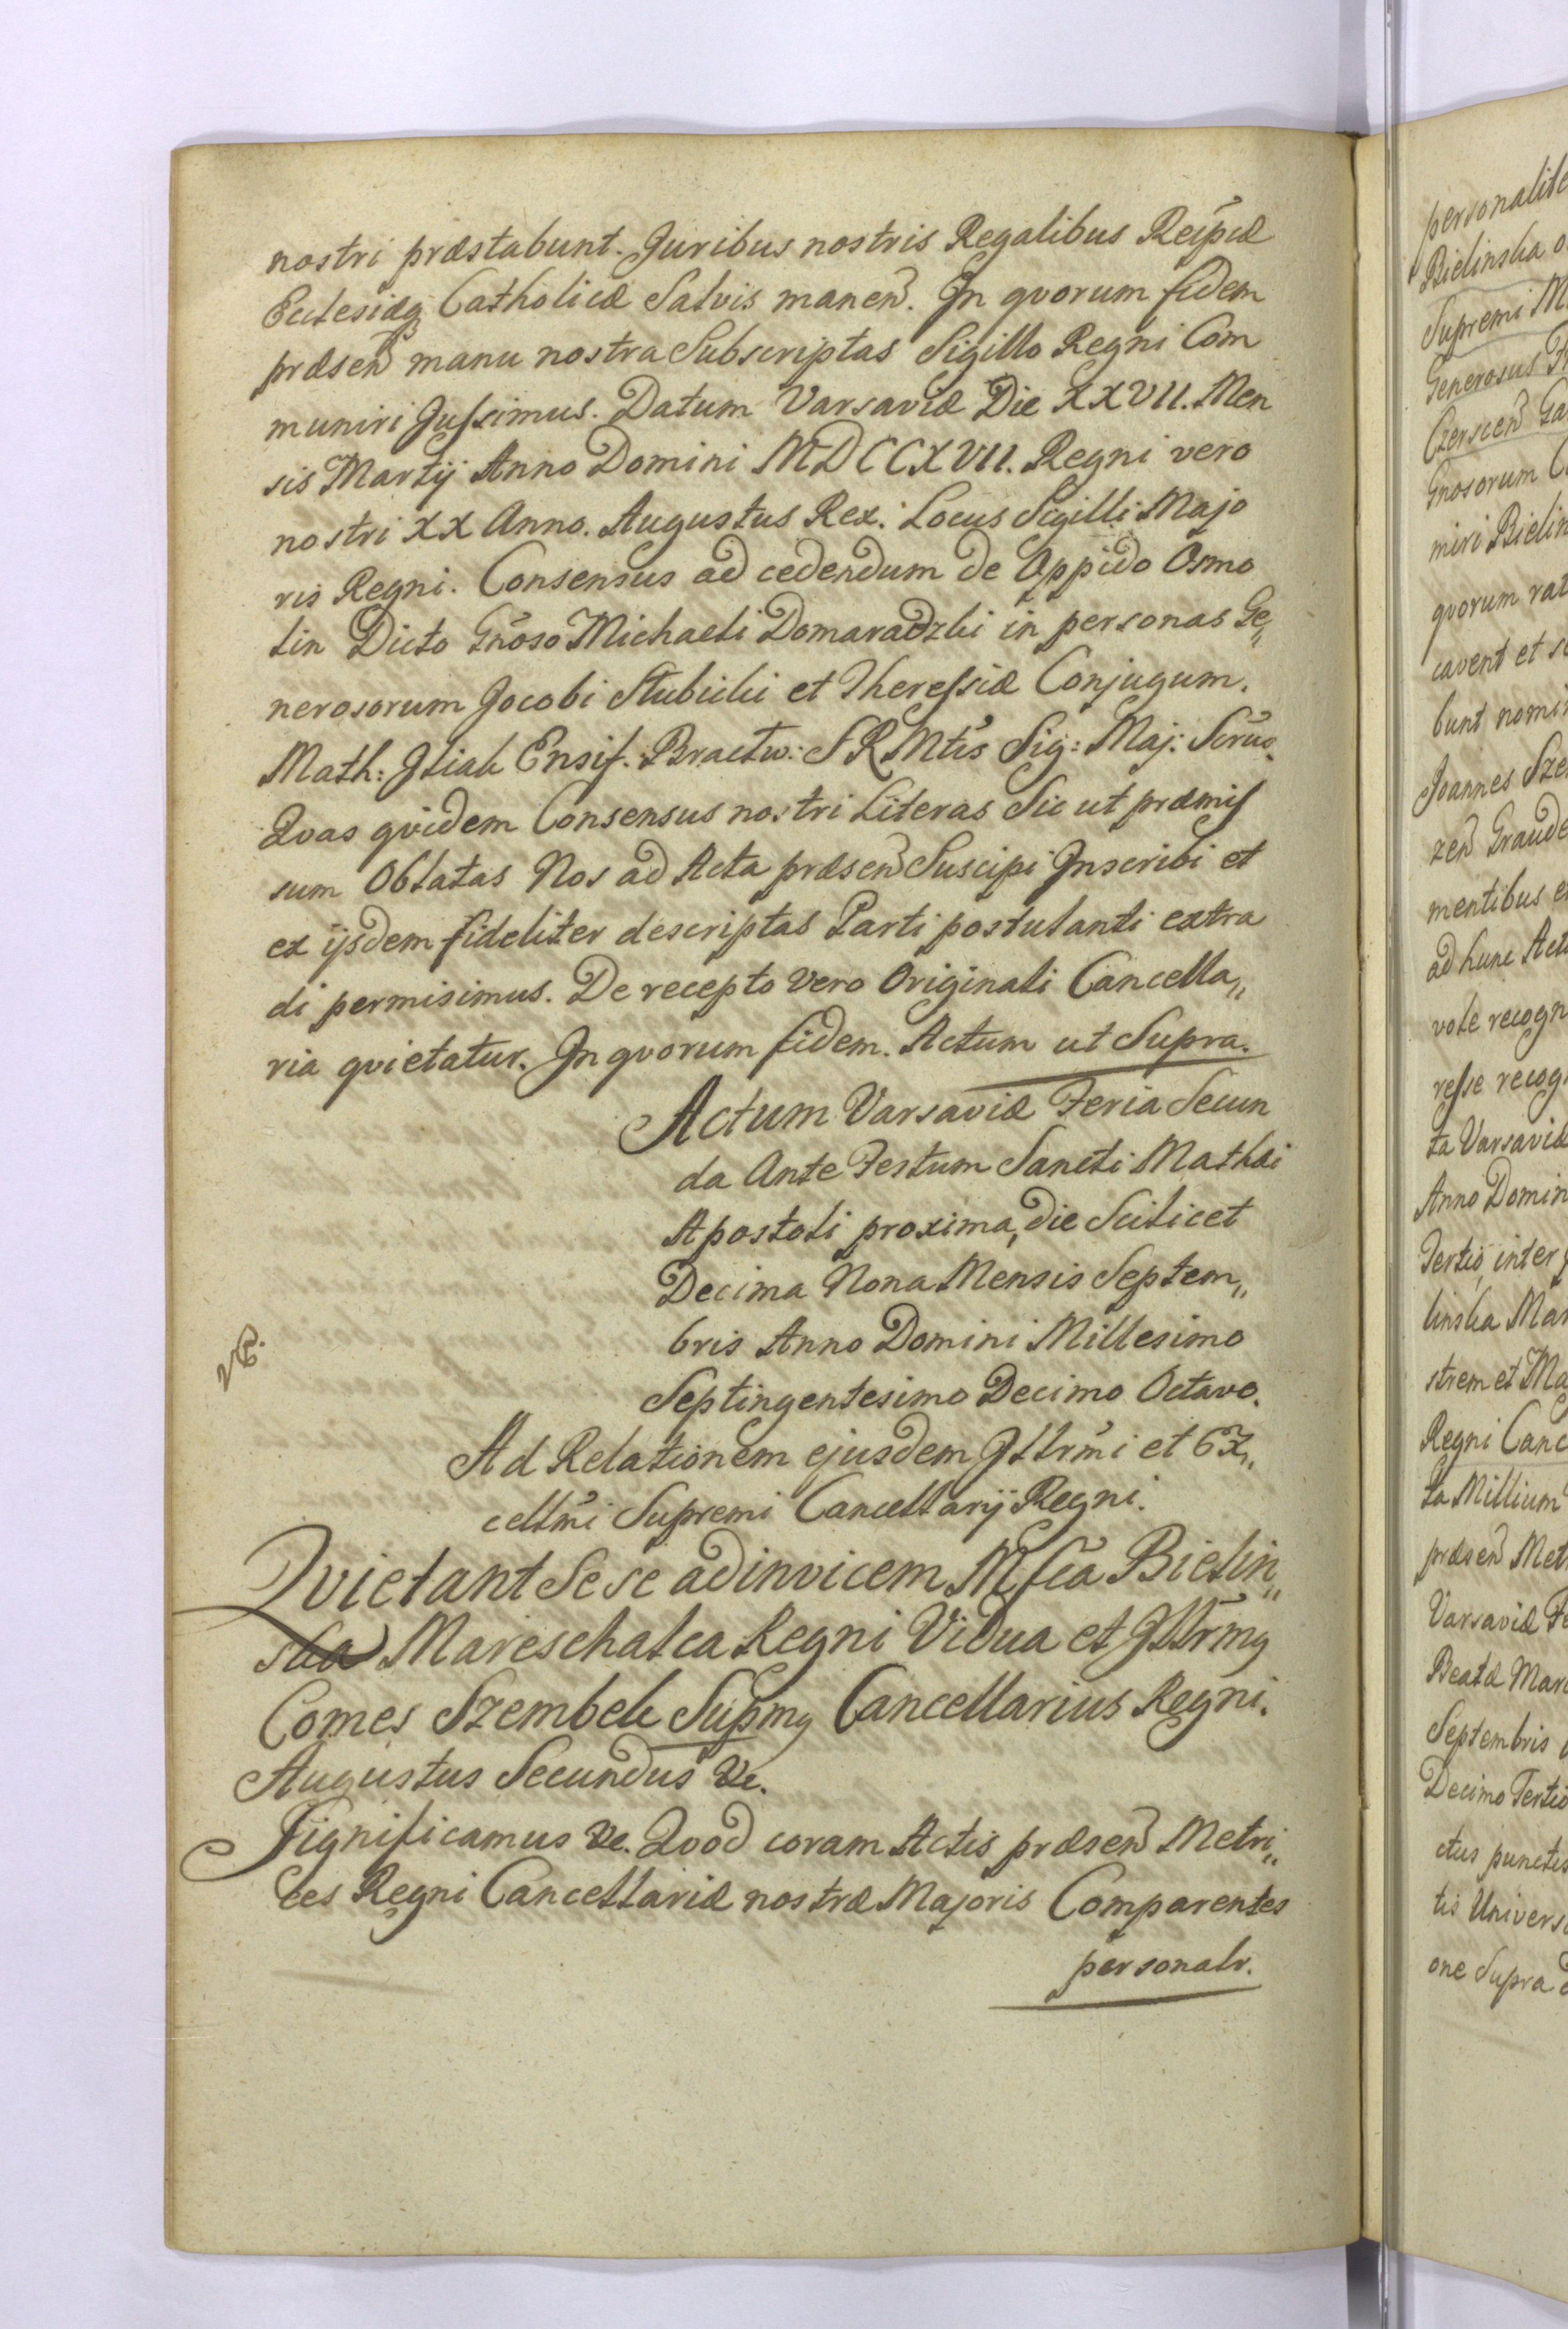 nostri præstabunt. Juribus nostris Regalibus Reipcæ
Ecclesiæq Catholicæ Salvis manen. In qvorum fidem
præsen manu nostra Subscriptas Sigillo Regni Com
muniri Jussimus. Datum Varsaviæ Die XXVII. Men
sis Martij Anno Domini MDCCXVII. Regni vero
nostri XX Anno. Augustus Rex. Locus Sigilli Majo
ris Regni. Consensus ad cedendum de Oppido Osmo
lin Dicto Gnoso Michaeli Domaradzki in personas Ge„
nerosorum Jacobi Slubicki et Theressiæ Conjugum.
Math: Jliak Ensif. Bractw: S R Mtis Sig: Maj: Scrūs.
Qvas qvidem Consensus nostri Literas Sic ut præmis
sum Oblatas Nos ad Acta præsen Suscipi Inscribi et
ex ijsdem fideliter descriptas Parti postulanti extra
di permisimus. De recepto vero Originali Cancella„
ria qvietatur. In qvorum fidem. Actum ut Supra.
Actum Varsaviæ Feria Secun
da Ante Festum Sancti Mathæi
Apostoli proxima, die Scilicet
Decima Nona Mensis Septem„
bris Anno Domini Millesimo
Septingentesimo Decimo Octavo.
Ad Relationem ejusdem Jllrmi et Ex„
cellmi Supremi Cancellarij Regni.
Qvietant Sese adinvicem Mfca Bielin„
ska Mareschalca Regni Vidua et Jllrmq
Comes Szembek Supmq Cancellarius Regni.
Augustus Secundus &c.
Significamus &c. Qvod coram Actis præsen Metri„
ces Regni Cancellariæ nostræ Majoris Comparentes
personalr.
personalite
Bielinska
Supremi M
Generosus
Czerscen
Gnosorum
miri Bielin
qvorum rat
cavent et
bunt nomi
Joannes Sze
zen Graude
mentibus
ad hunc Act
vole recogn
resse recog
ta Varsaviæ
Anno Domin
Tertio, inter
linska Mar
strem et Ma
Regni Canc
ta Millium
præsen Met
Varsaviæ Fe
Beatæ Mari
Septembris
Decimo Tertio
ctus punctis
tis Univers
one Supra